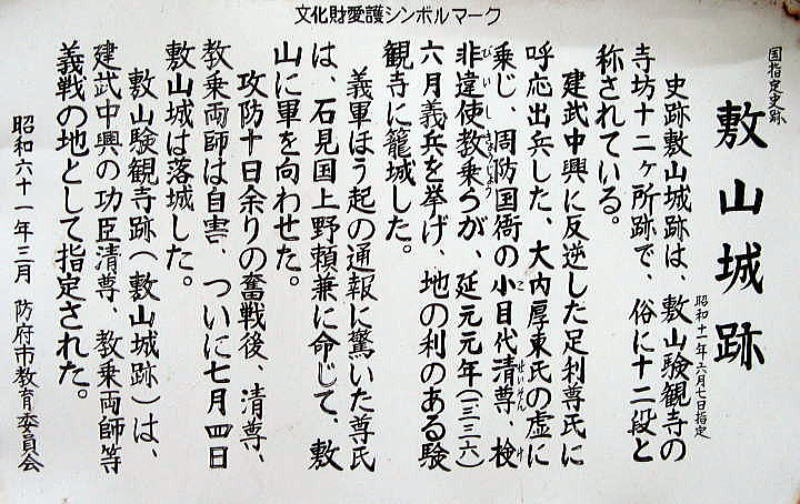 文化財愛護シンボルマーク
国指定史跡
敷山城跡
昭和十一年六月七日指定
史跡敷山城跡は、敷山験観寺の
寺坊十二ヶ所跡で、俗に十二段と
称されている。
建武中興に反逆した足利尊氏に
呼応出兵した、大内厚東氏の虚に
乗じ、周防国衙の小目代清尊、検
非違使教乗らが、延元元年(一三三六)
六月義兵を挙げ、地の利のある験
観寺に籠城した。
義軍ほう起の通報に驚いた尊氏
は、石見国上野頼兼に命じて、敷
山に軍を向わせた。
攻防十日余りの奮戦後、清尊、
教乗両師は自害、ついに七月四日
敷山城は落城した。
敷山験観寺跡(敷山城跡)は、
建武中興の功臣清尊、教乗両師等
義戦の地として指定された。
昭和六十一年三月 防府市教育委員会